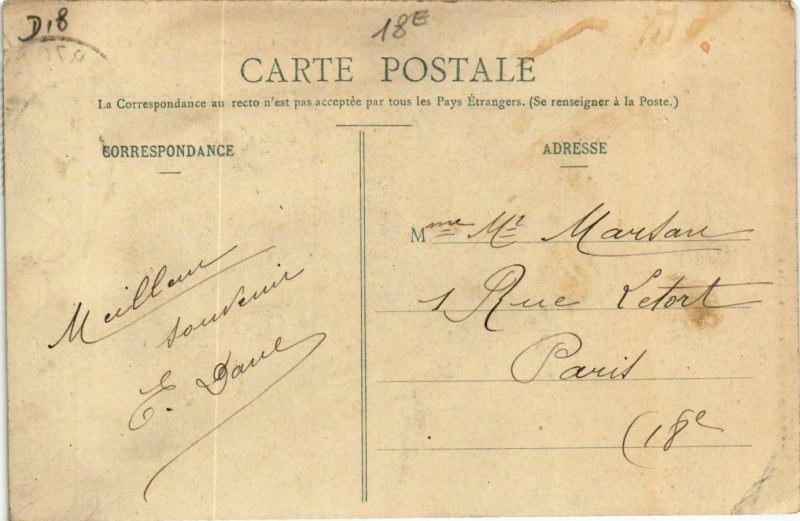 D.8
18E
CARTE POSTALE
La Correspondance au recto n'est pas acceptée par tous les Pays Étrangers. (Se renseigner à la Poste.)
CORRESPONDANCE
Meilleur
souvenir
E.
ADRESSE
Mme Mr Marsan
1 Rue Letort
Paris
(18e